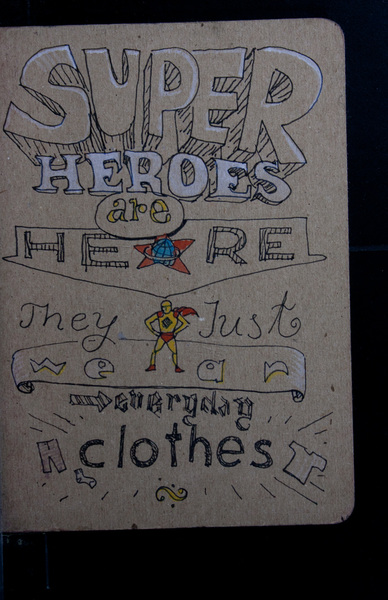 SUPER
HEROES
are
HERE
They Just
wear
everyday
clothes